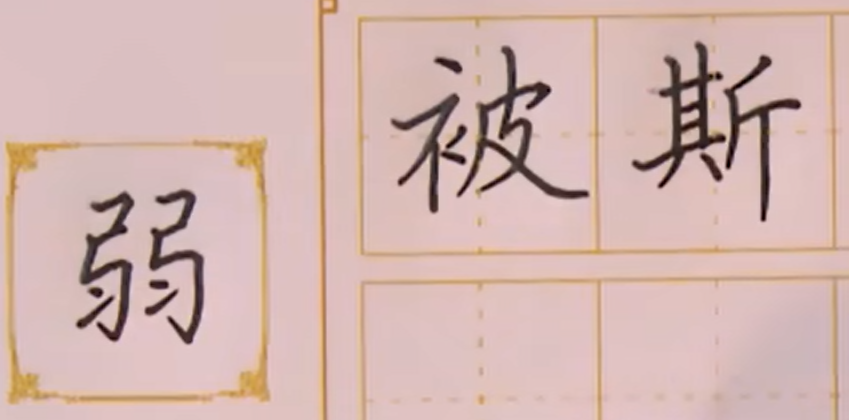 弱
被斯